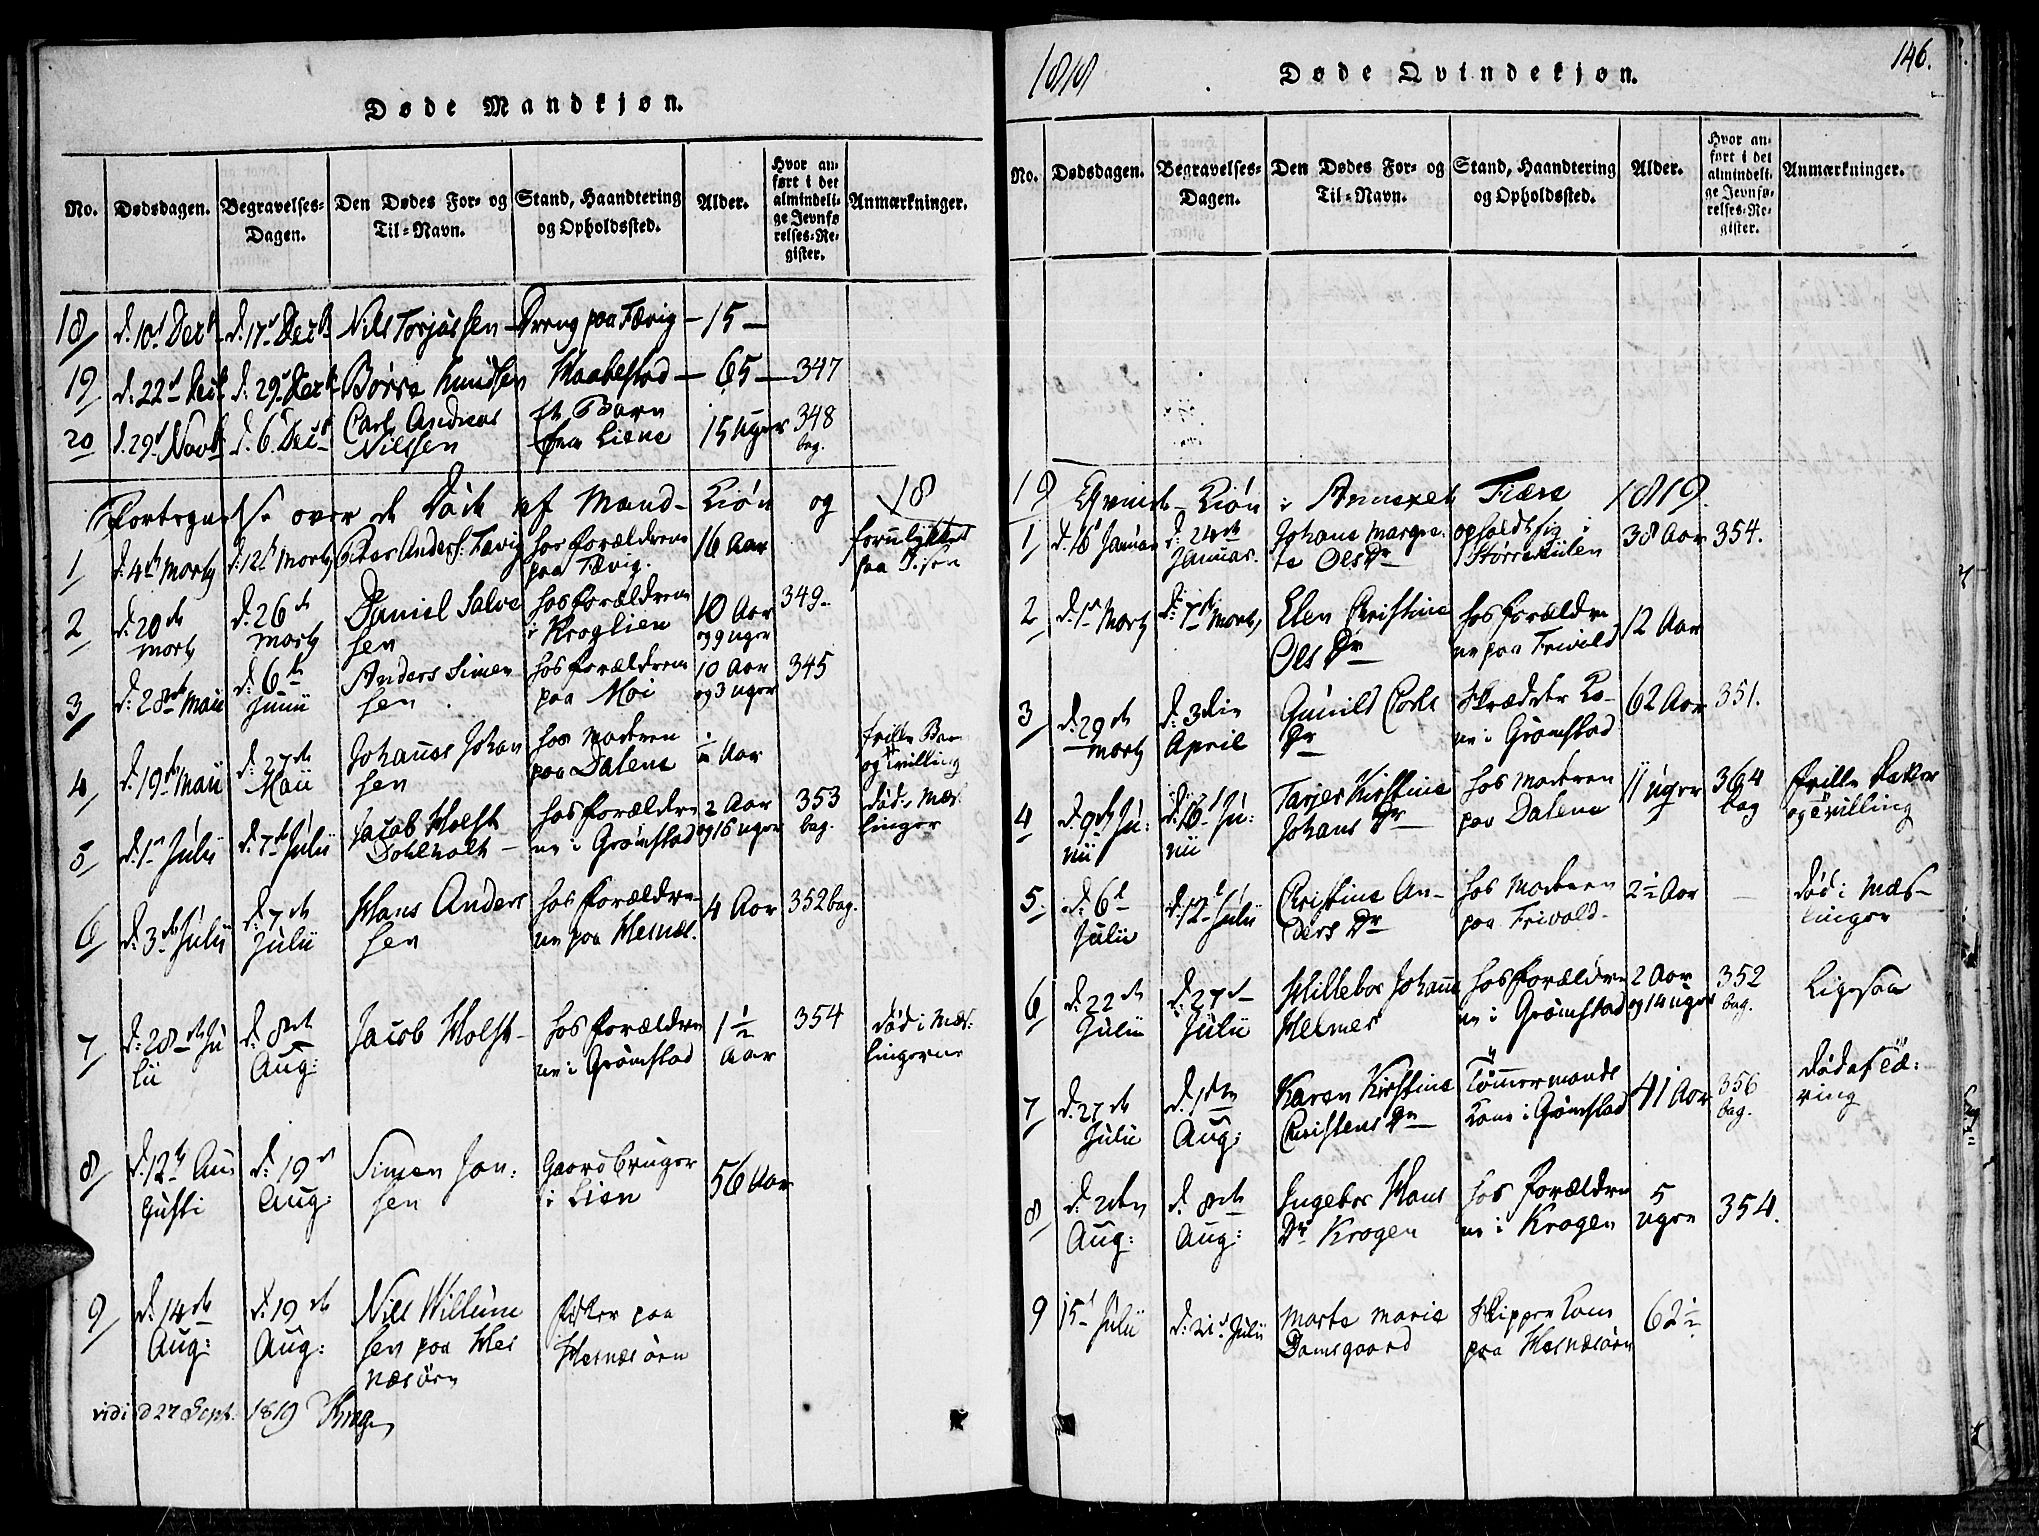 Døde Mandkjøn.
No. Dødsdagen. Begravelses-Dagen. Den Dødes For- og Til-Navn. Stand, Haandtering og Opholdssted. Alder. Hvor anført i det almindelige Jevnførelses-Register. Anmærkninger.
18/ d: 10d Decb d: 17d Decb Nils Torjussen Dreng paa Fævig 15
19/ d: 22d Decb d: 29d Decb Børre Knudsen 65 347
20 d. 29d Novb d. 6t Decb Carl Andreas Nielsen Et Barn fra Liene 15 uger 348 bag.
Fortegnelse over de Døde af Mand-Kiøn og 18
1/ d: 4de Martz d: 12te Martz Peter Anders: Fævig hos forældrene paa Fævig. 16 Aar forulykket paa Isen
2/ d: 20de Martz d: 26de Martz Daniel Salvesen hos forældrene i Kroglien 10 Aar og 9 uger 349
3/ d: 28de Maii d: 6te Junii Anders Simensen hos forældrene paa Moi 10 Aar og 3 uger 345
4/ d: 19de Maii d: 27de Maii Johannes Johansen hos Moderen paa Dalene ½ Aar frille Barn og tvilling
5/ d: 1ste Julii d: 7de Julii Jacob Holst Dahlholt hos forældrene i Grømstad 2 Aar og 16 uger 353 bag. død i Mæslinger
6/ d: 3die Julii d: 7de Julii Hans Andersen hos forældrene paa Hesnæs. 4 Aar 352 bag.
7/ d: 28de Julii d: 8de Aug: Jacob Holst hos forældrene i Grømstad 1½ Aar 354 død i Mæslingerne
8/ d. 12te Augusti d: 19de Aug: Simen Jonsen Gaardbruger i Lien 56 Aar
9/ d: 14de Aug: d: 19de Aug: Nils Willumsen paa Hesnæsøen fisker paa Hesnæsøen
vidi d 27 Sept. 1819
1818 Døde Qvindekjøn. 146.
No. Dødsdagen. Begravelses-Dagen. Den Dødes For- og Til-Navn. Stand, Haandtering og Opholdssted. Alder. Hvor anført i det almindelige Jevnførelses-Register. Anmærkninger.
19 Qvinde-Kiøn i Annexet Fiære 1819.
1/ d. 18 Januar d: 24de Januar. Johane Margrete Ols Dr opholdt sig i Størrekiilen 38 Aar 354.
2/ d. 1ste Martz d: 7de Martz Elen Christine Ols Dr hos forældrene paa Frivold 12 Aar
3/ d. 29de Martz d: 3die April Gunild Carls Dr Skrædder Kone i Grømstad 62 Aar 351.
4/ d: 9de Junii d. 16de Junii Tarjer Kirstine Johans Dr hos Moderen paa Dalene 11 uger 364 bag frille Datter og tvilling
5. d: 6te Julii d. 12te Julii Christine Anders Dr hos Moderen paa Frivold 2½ Aar død i Mæslinger
6/ d: 22de Julii d: 27de Julii Hilleboe Johanne Helmer hos forældrene i Grømstad 2 Aar og 14 uger 352 bag. Ligesaa
7/ d. 27de Julii d. 1ste Aug: Karen Kirstine Christens Dr Tømmermands Kone i Grømstad 41 Aar 356 bag.
8/ d. 2den Aug: d. 8de Aug: Ingebor Hans Dr Krogen hos forældrene i Krogen 5 uger 354.
9 15de Julii d: 21de Julii Marte Marie Damsgaard Skipper Kone paa Hesnæsøen 62½